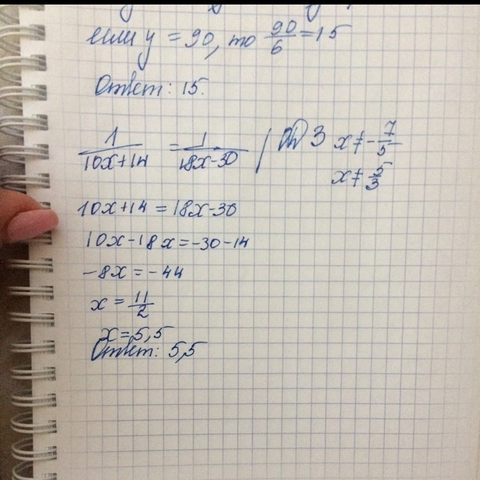 если y = 90, то 90/6 = 15
Ответ: 15.
1/(10x+14) = 1/(18x-30) / ОДЗ x ≠ -7/5
x ≠ 5/3
10x+14 = 18x-30
10x-18x = -30-14
-8x = -44
x = 11/2
x = 5,5
Ответ: 5,5